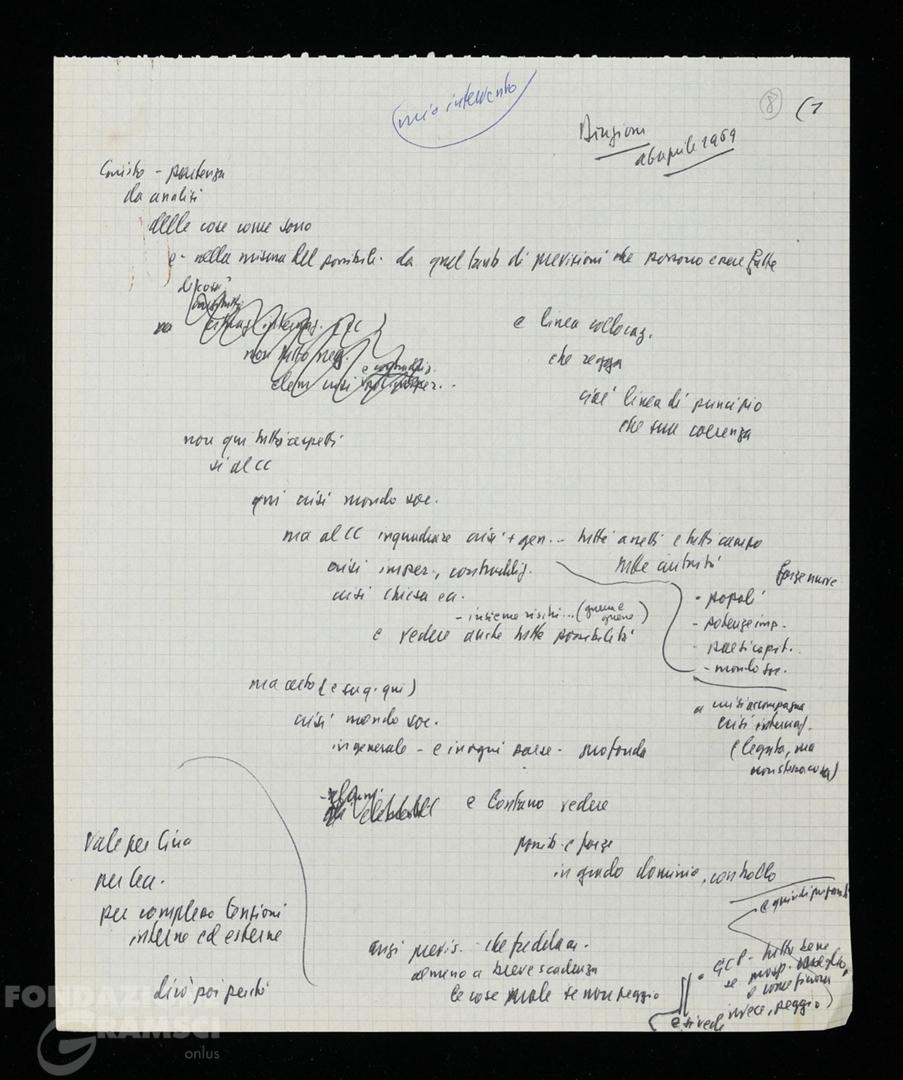 mio intervento
8
(1
Direzione
26 aprile 1969
Giusto - partenza
da analisi
delle cose come sono
e - nella misura del possibile - da quel tanto di previsioni che possono essere fatte
di cosa?
non tutto neg.
e linea collocaz.
che regga
cioè linea di principio
che sua coerenza
non qui tutti aspetti
sì al CC
qui crisi mondo soc.
ma al CC inquadrare crisi + gen. - tutti anelli e tutti campi
tutte autorità
crisi imper., contraddiz.
crisi chiesa ecc.
- insieme rischi... (guerra e guerre)
e vedere anche tutte possibilità
forze nuove
- popoli
- potenze imp.
- paesi capit.
- mondo soc.
ma certo (e sugg. qui)
crisi mondo soc.
in generale - e in ogni paese - profonda
a crisi accompagna
crisi internaz.
(legata, ma
non stessa cosa)
e lontano vedere
punti e forze
in grado dominio, controllo
Vale per Cina
per Cec.
per complesso tensioni
interne ed esterne
dirò poi perché
anzi previs. che
almeno a breve scadenza
le cose male se non peggio
e quindi
GCP - tutto bene
se prosp. meglio
invece, peggio)
e si vede
FONDAZIONE
GRAMSCI
onlus